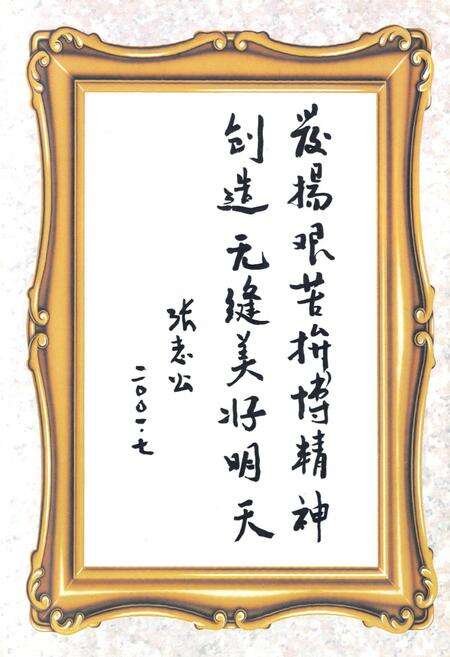 發揚艰苦拚博精神
创造无缝美好明天
张志公
二〇〇一.七